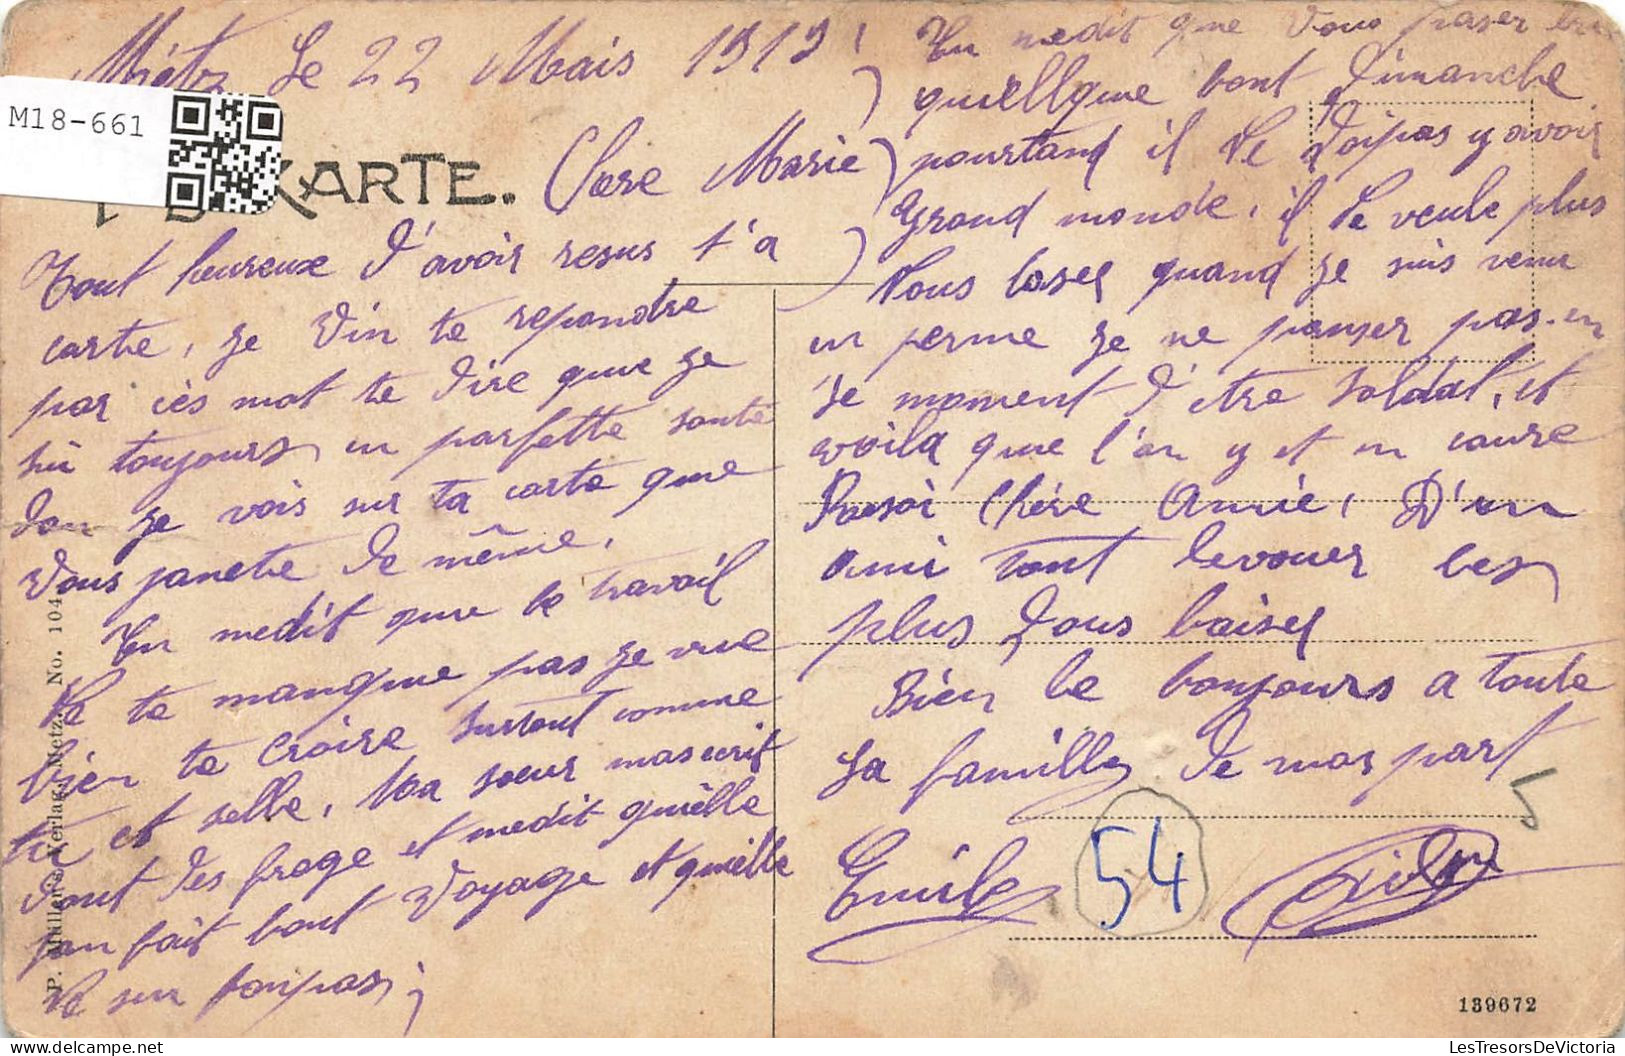 Miétz le 22 Mais 1919
M18-661
KARTE.
Chere Marie
Tout heureux d'avoir resus t'a
carte, je vin te repondre
par cès mot te dire que je
sui toujours en parfette santé
don je vois sur ta carte que
vous janete de même,
Tu medit que le travail
ne te manque pas je veue
bien te croire surtout comme
tu et selle, ta soeur mas ecrit
dont des frage et medit qu'elle
fait bont voyage et qu'elle
ne s'en pas;
Tu medit que vous paser
quellque bont dimanche
pourtand il ne doi pas y avoir
grand monde, il ne veule plus
vous laser quand je suis venu
en perme je ne panser pas en
se moment d'etre soldat, et
voila que l'on y et en caure
Bonsoi Chère Amie, D'un
ami tout devouer les
plus dous baiser
Bien le bonjours a toute
ta famille de mas part
Emile
54
5
P. Müller's Verlag, Metz. No. 104
139672
LesTresorsDeVictoria